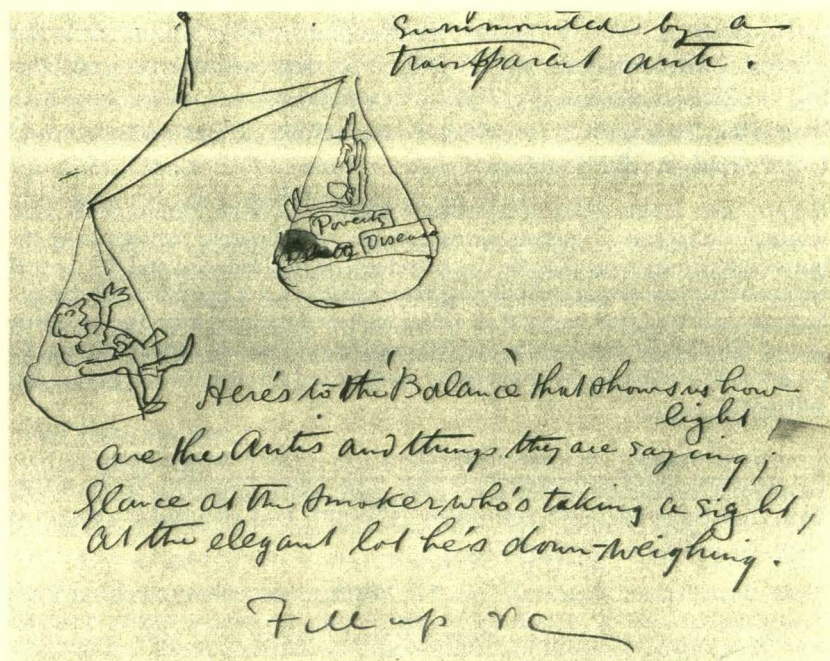 Surmounted by a
transparent anti.
Poverty
Disease
Here's to the 'Balance' that shows us how
light
are the Antis and things they are saying;
Glance at the smoker who's taking a sight,
at the elegant lot he's down-weighing.
Fill up &c